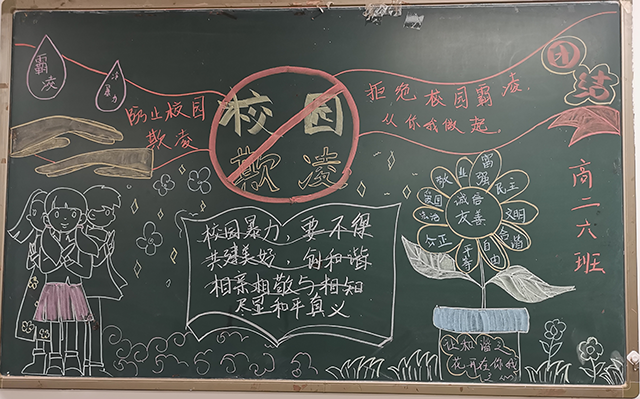 霸凌
暴力
防止校园
欺凌
校园
欺凌
拒绝校园霸凌
从你我做起
团结
高二六班
校园暴力,要不得
共建美好,创和谐
相亲相敬与相知
尽显和平真义
富强
民主
文明
和谐
自由
平等
公正
爱国
敬业
诚信
友善
让和谐之
花开在你我